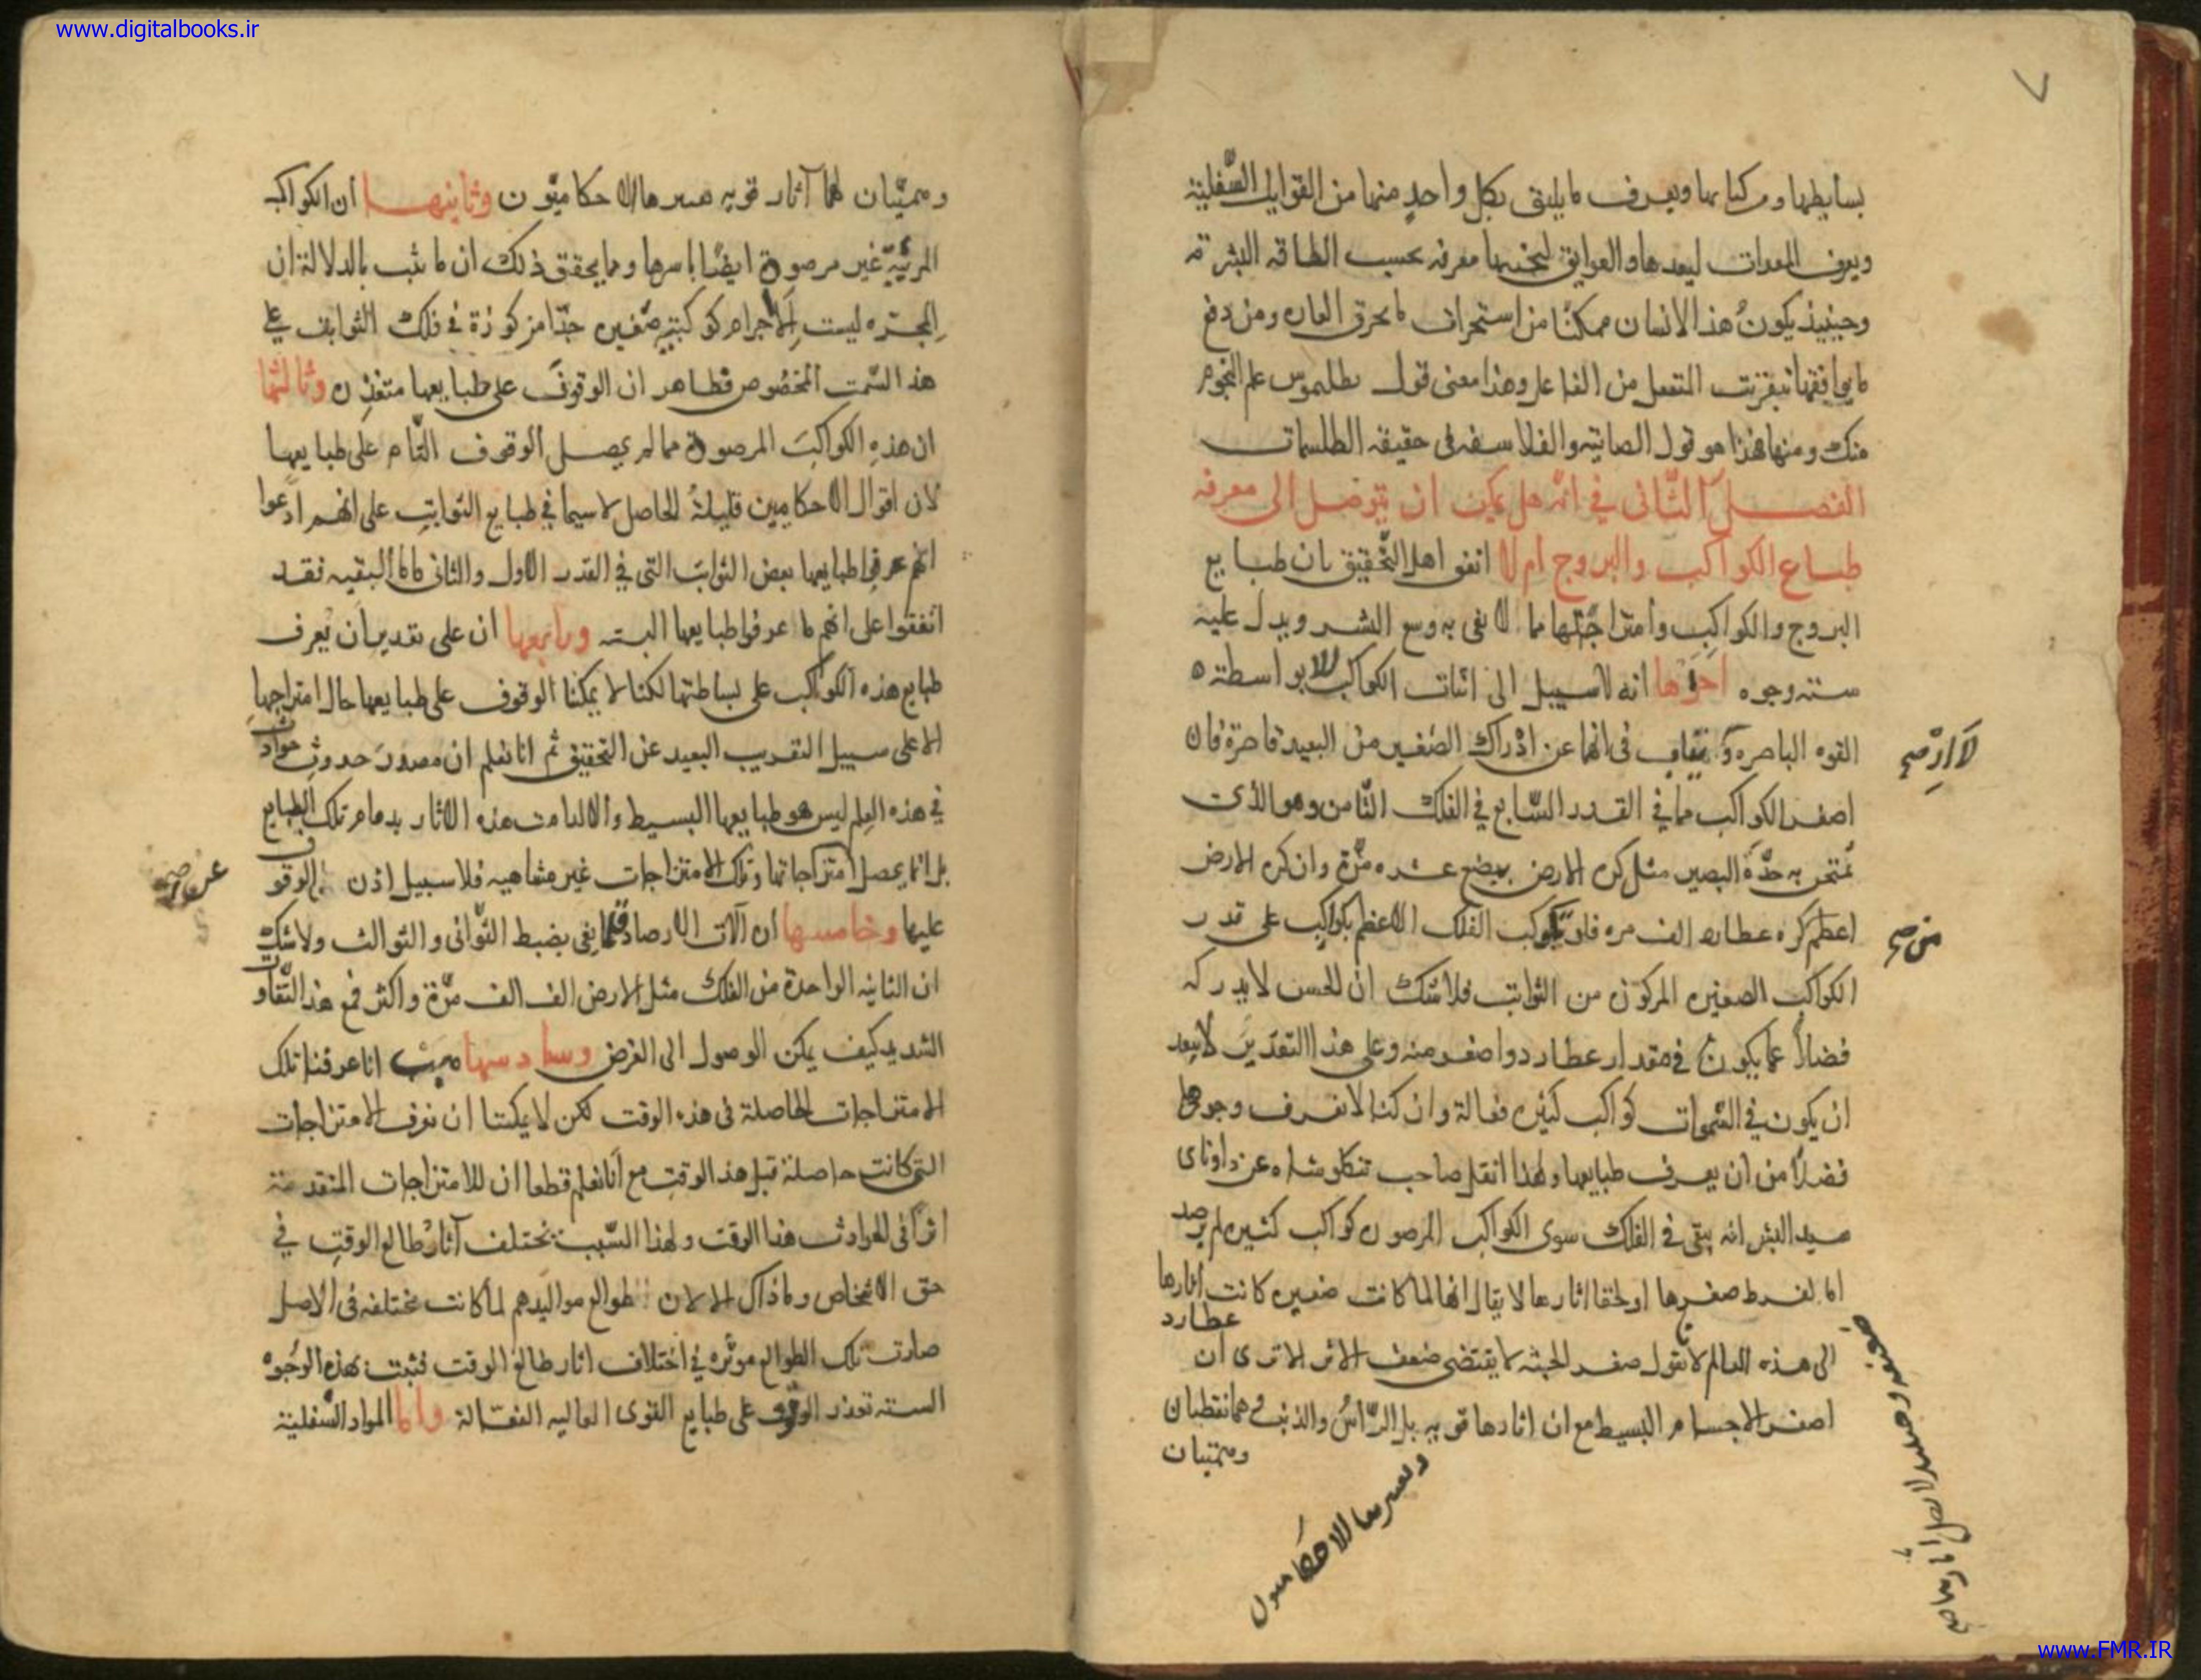 www.digitalbooks.ir
٧
بسايطها ومركباتها ويعرف ما يليق بكل واحد منها من القوابل السفلية
ويعرف المعدات ليعدها والعوايق ليجتنبها معرفة بحسب الطاقة البشرية
وحينيذ يكون هذا الانسان ممكنا من استحراف ما يخرق العادة ومن دفع
ما يوافقها بتقريب المنفعل من الفاعل وهذا معنى قول بطلميوس علم النجوم
منك ومنها هذا هو قول الصابية والفلاسفه فى حقيقة الطلسمات
الفصل الثاني في انه هل يمكن ان يتوصل الى معرفة
طبايع الكواكب والبروج ام لا اتفق اهل التحقيق بان طبايع
البروج والكواكب وامتزاجاتها مما لا يفى به وسع البشر ويدل عليه
سته وجوه احدها انه لا سبيل الى اثبات الكواكب الا بواسطة
القوه الباصره ولا ارتياب فى انها عن ادراك الصغير من البعيد قاصرة فان
اصغر الكواكب مما في القدر السابع في الفلك الثامن وهو الذي
يمتحن به حدة البصر مثل كره الارض ببضع عشره مرة وان كره الارض
اعظم كره عطارد الف مره فلو تكوكب الفلك الاعظم بكواكب على قدر
الكواكب الصغيره المركوزه من الثوابت فلا شك ان الحس لا يدركه
فضلا عما يكون في مقدار عطارد واصغر منه وعلى هذا التقدير لا يبعد
ان يكون في السموات كواكب كثيره فعالة وان كنا لا نعرف وجودها
فضلا من ان يعرف طبايعها ولهذا نقل صاحب تنكلوشاه عن دواناى
سيد البشر انه بقي في الفلك سوى الكواكب المرصوده كواكب كثيره لم يرصد
اما لفرط صغرها او لخفا اثارها لا يقال انها لما كانت صغيره كانت اثارها
الى هذه العالم لا نقول صغر الجثه لا يقتضى ضعف الاثر الا ترى ان عطارد
اصغر الاجسام البسيط مع ان اثارها قويه بل الراس والذنب وهما نقطتان
وهميتان
لا ار صح
من صح
ضعيفه وصح
الاحكاميون
وهميتان لهما آثار قويه الاحكاميون وثانيها ان الكواكب
المرئية غير مرصودة ايضا باسرها ومما يحقق ذلك ان ما ثبت بالدلالة ان
المجره ليست الا اجرام كوكبية صغيره جدا مركوزة في فلك الثوابت على
هذا السمت المخصوص فظاهر ان الوقوف على طبايعها متعذره وثالثها
ان هذه الكواكب المرصودة مما لم يحصل الوقوف التام على طبايعها
لان اقوال الاحكاميين قليلة الحاصل لا سيما في طبايع الثوابت على انهم ادعوا
انهم عرفوا طبايعها بعض الثوابت التى في القدر الاول والثانى فاما البقيه فقد
اتفقوا على انهم ما عرفوا طبايعها البته ورابعها ان على تقدير ان يعرف
طبايع هذه الكواكب على بساطتها لكنا لا يمكنا الوقوف على طبايعها حال امتزاجها
الا على سبيل التقريب البعيد عن التحقيق ثم انا نعلم ان مصدر حدوث حوادث
في هذه العالم ليس هو طبايعها البسيط والا لدامت هذه الاثار بدوام تلك الطبايع
بل انما يحصل امتزاجاتها وتلك الامتزاجات غير متناهيه فلا سبيل اذن الوقوف
عليها وخامسها ان آلات الارصاد قلما يفى بضبط الثوانى والثوالث ولا شك
ان الثانيه الواحدة من الفلك مثل الارض الف الف مرة واكثر فمع هذا التفاوت
الشديد كيف يمكن الوصول الى الغرض وسادسها هب انا عرفنا تلك
الامتزاجات الحاصلة فى هذه الوقت لكن لا يمكننا ان نعرف الامتزاجات
التى كانت حاصلة قبل هذا الوقت مع انا نعلم قطعا ان للامتزاجات المتقدمة
اثرا فى الحوادث هذا الوقت ولهذا السبب تختلف آثار طالع الوقت في
حق الاشخاص وما ذاك الا لان طوالع مواليدهم لما كانت مختلفه فى الاصل
صارت تلك الطوالع موثره في اختلاف اثار طالع الوقت فثبت بهذه الوجوه
السته تعذر الوقوف على طبايع القوى العاليه الفعالة واما المواد السفلية
www.FMR.IR